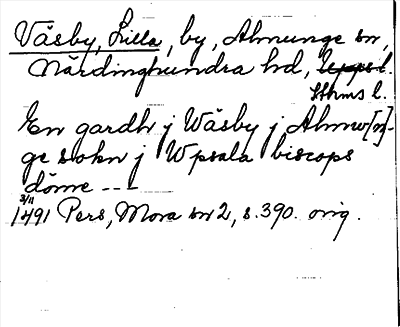 Väsby, Lilla, by, Almunge sn,
Närdinghundra hd, Upps l.
Sthms l.
En gardh j Wäsby j Almw[n]-
ge sokn j Wpsala biscops
döme ---
3/11
1491 Pers, Mora sn 2, s. 390. orig.